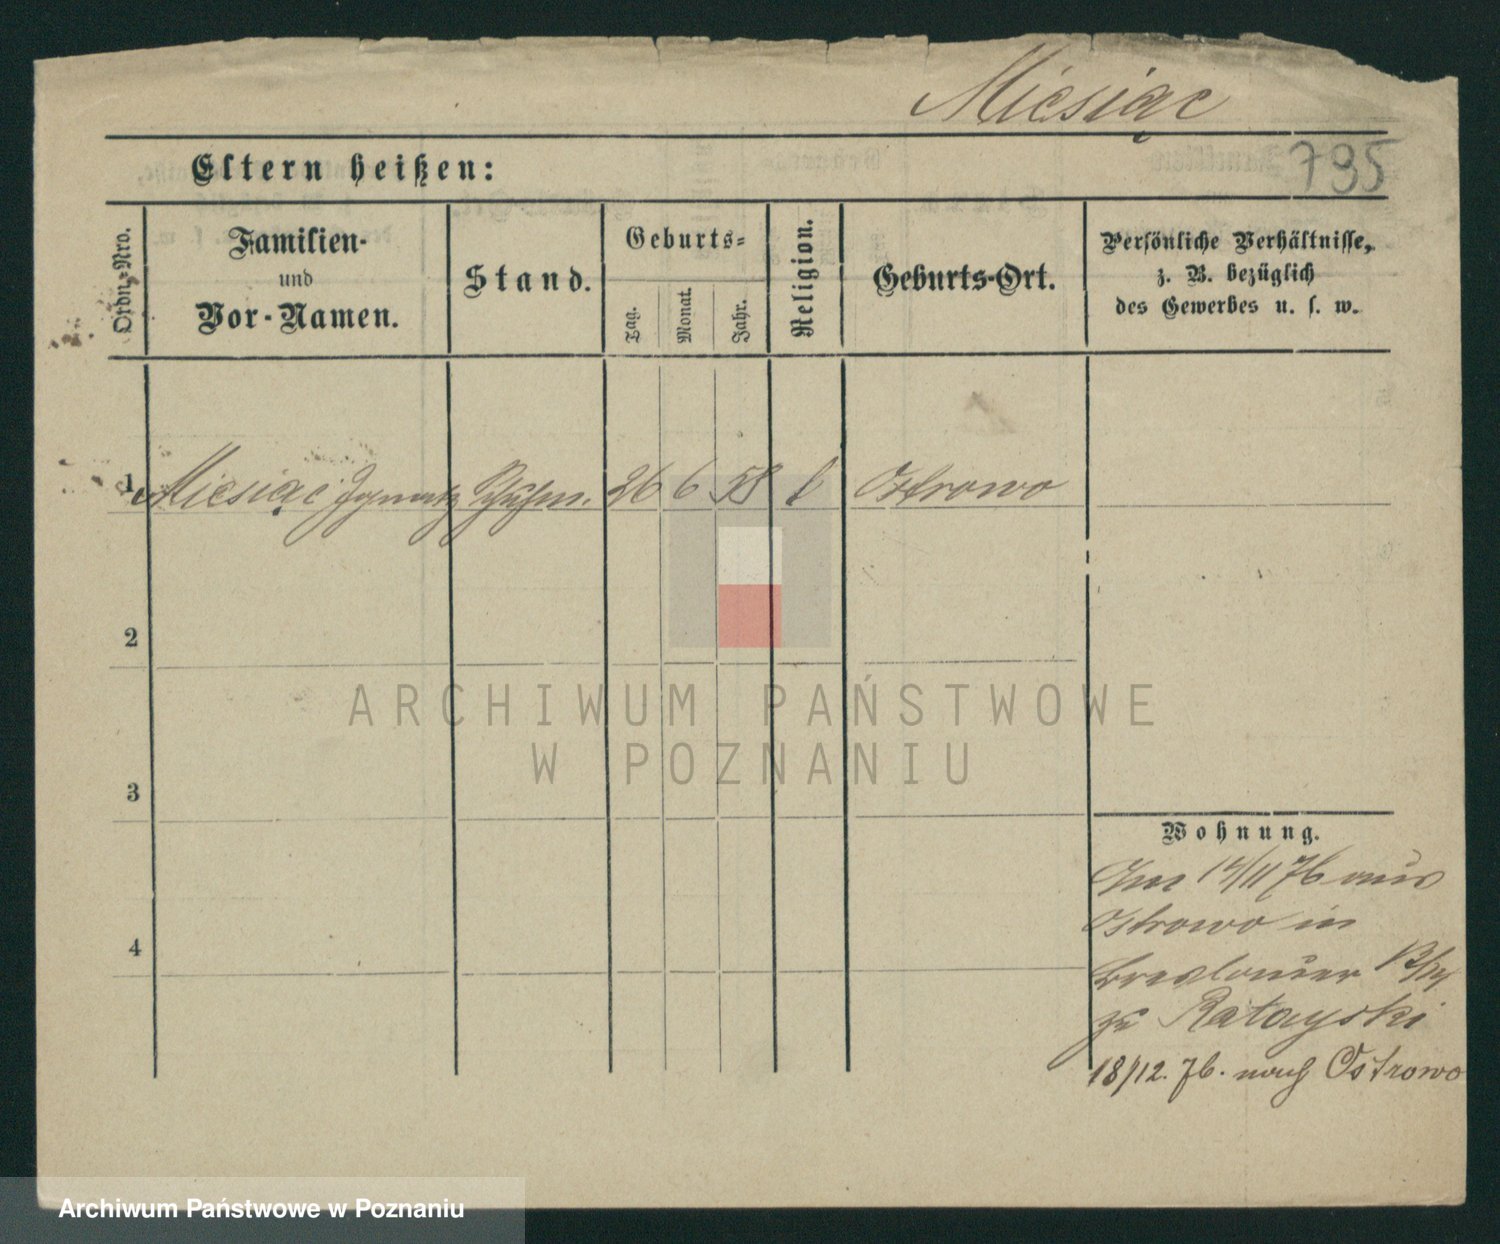 Miesiąc
795
Eltern heißen:
Ordn.-Nro.
Familien-
und
Vor-Namen.
Stand.
Geburts-
Tag.
Monat.
Jahr.
Religion.
Geburts-Ort.
Persönliche Verhältnisse,
z. B. bezüglich
des Gewerbes u. s. w.
1 Miesiąc Ignatz Schuhm. 26 6 58 k Ostrowo
2
3
4
Wohnung.
/11 76 aus
Ostrowo in
Breslauer
zu Ratayski
18/12. 76. nach Ostrowo
ARCHIWUM PAŃSTWOWE
W POZNANIU
Archiwum Państwowe w Poznaniu